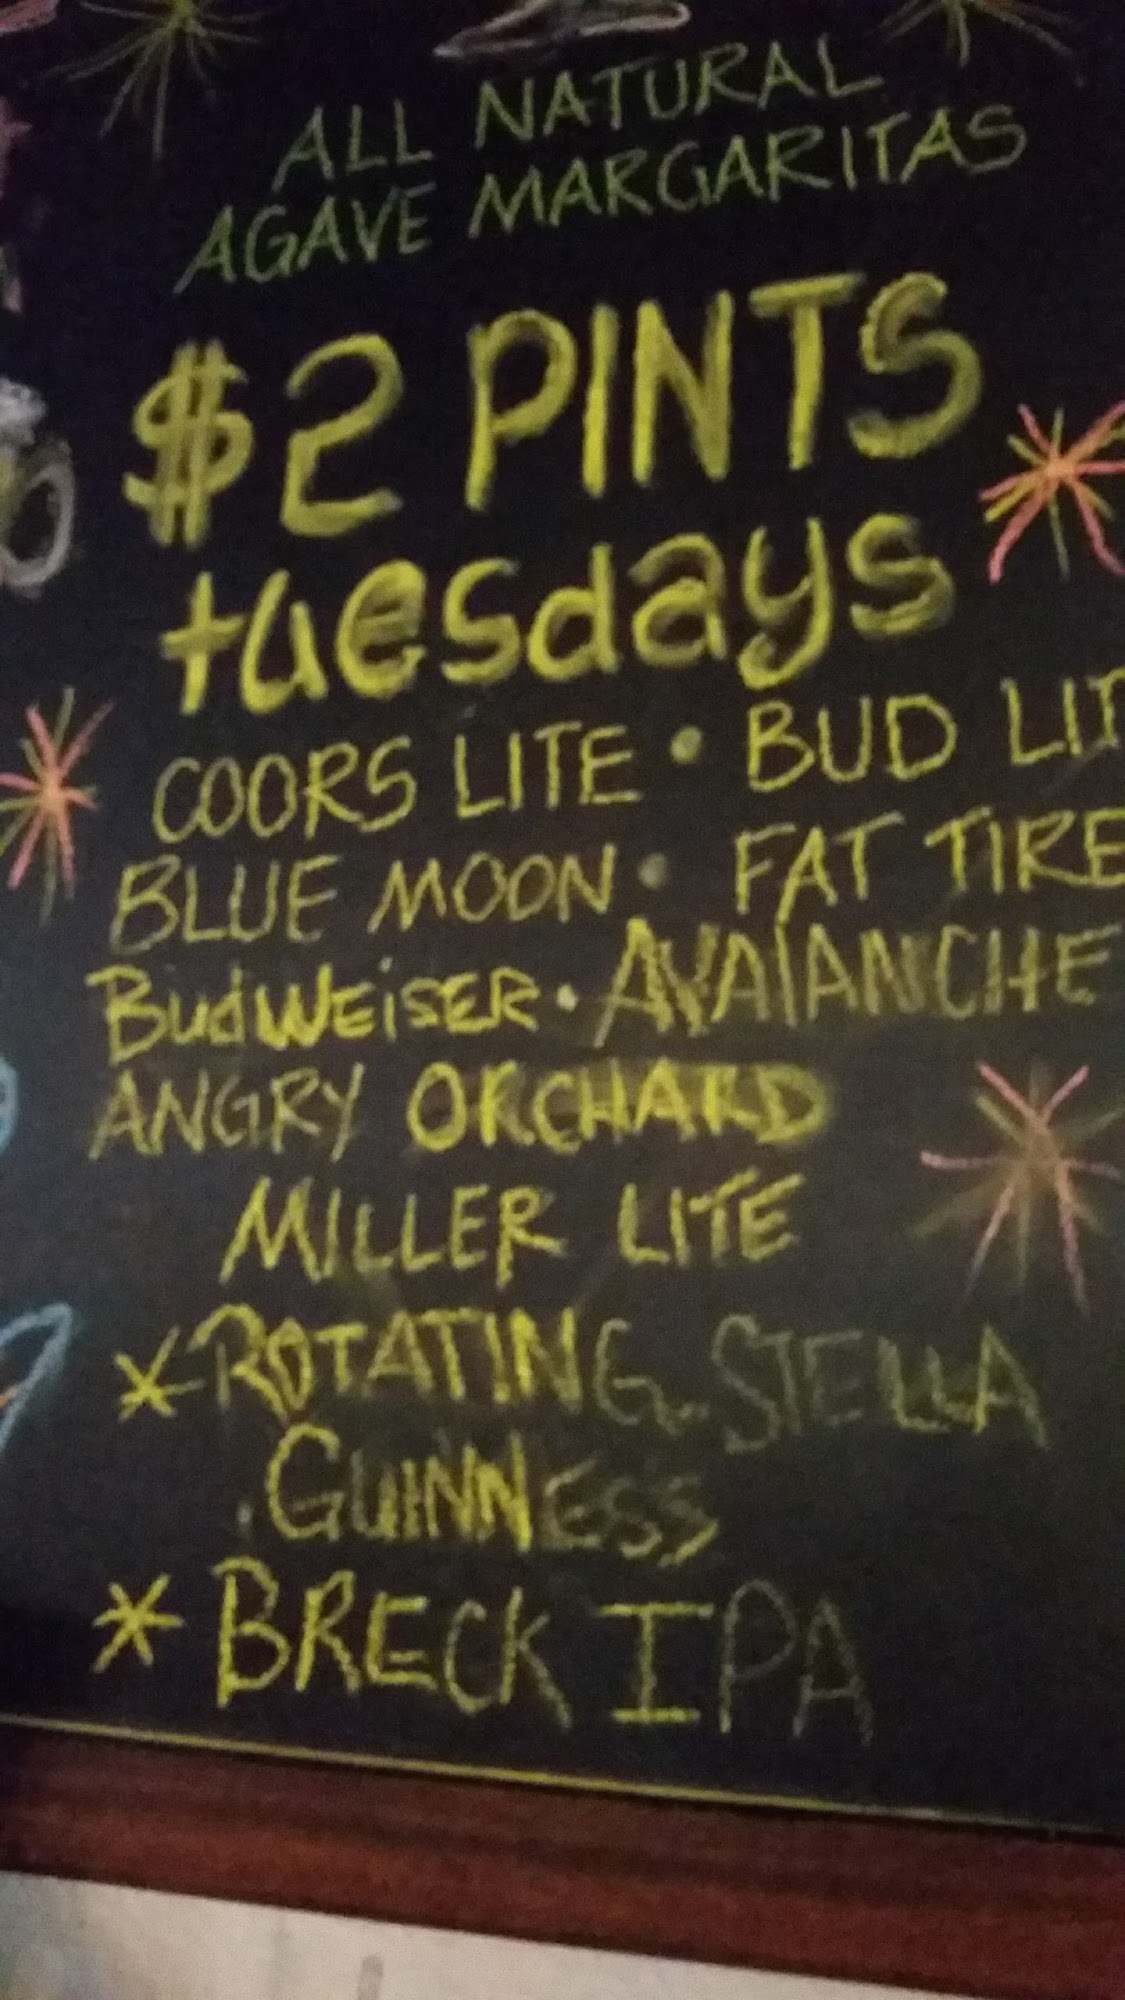 ALL NATURAL
AGAVE MARGARITAS
$2 PINTS
tuesdays
COORS LITE • BUD LIT
BLUE MOON • FAT TIRE
BudWEiSER • AVALANCHE
ANGRY ORCHARD
MILLER LITE
*ROTATING STELLA
GUINNESS
* BRECK IPA